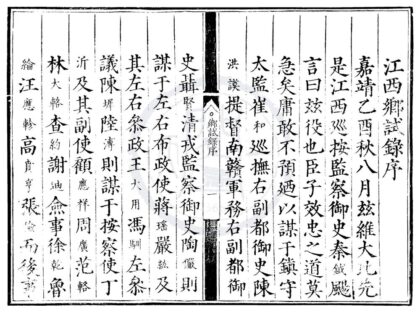 江西鄉試錄序
嘉靖乙酉秋八月茲維大比先
是江西巡按監察御史秦鉞颺
言曰茲役也臣子效忠之道莫
急矣庸敢不預廼以謀于鎮守
太監崔和巡撫右副都御史陳
洪謨提督南贛軍務右副都御
鄉試錄序
史聶賢清戎監察御史陶儼則
謀于左右布政使蔣瑶嚴紘及
其左右叅政王大用馮馴左叅
議陳墀陸溥則謀于按察使丁
沂及其副使顧應祥周廣范輅
林大輅查約謝迪僉事徐乾魯
綸汪應軫高賁亨張